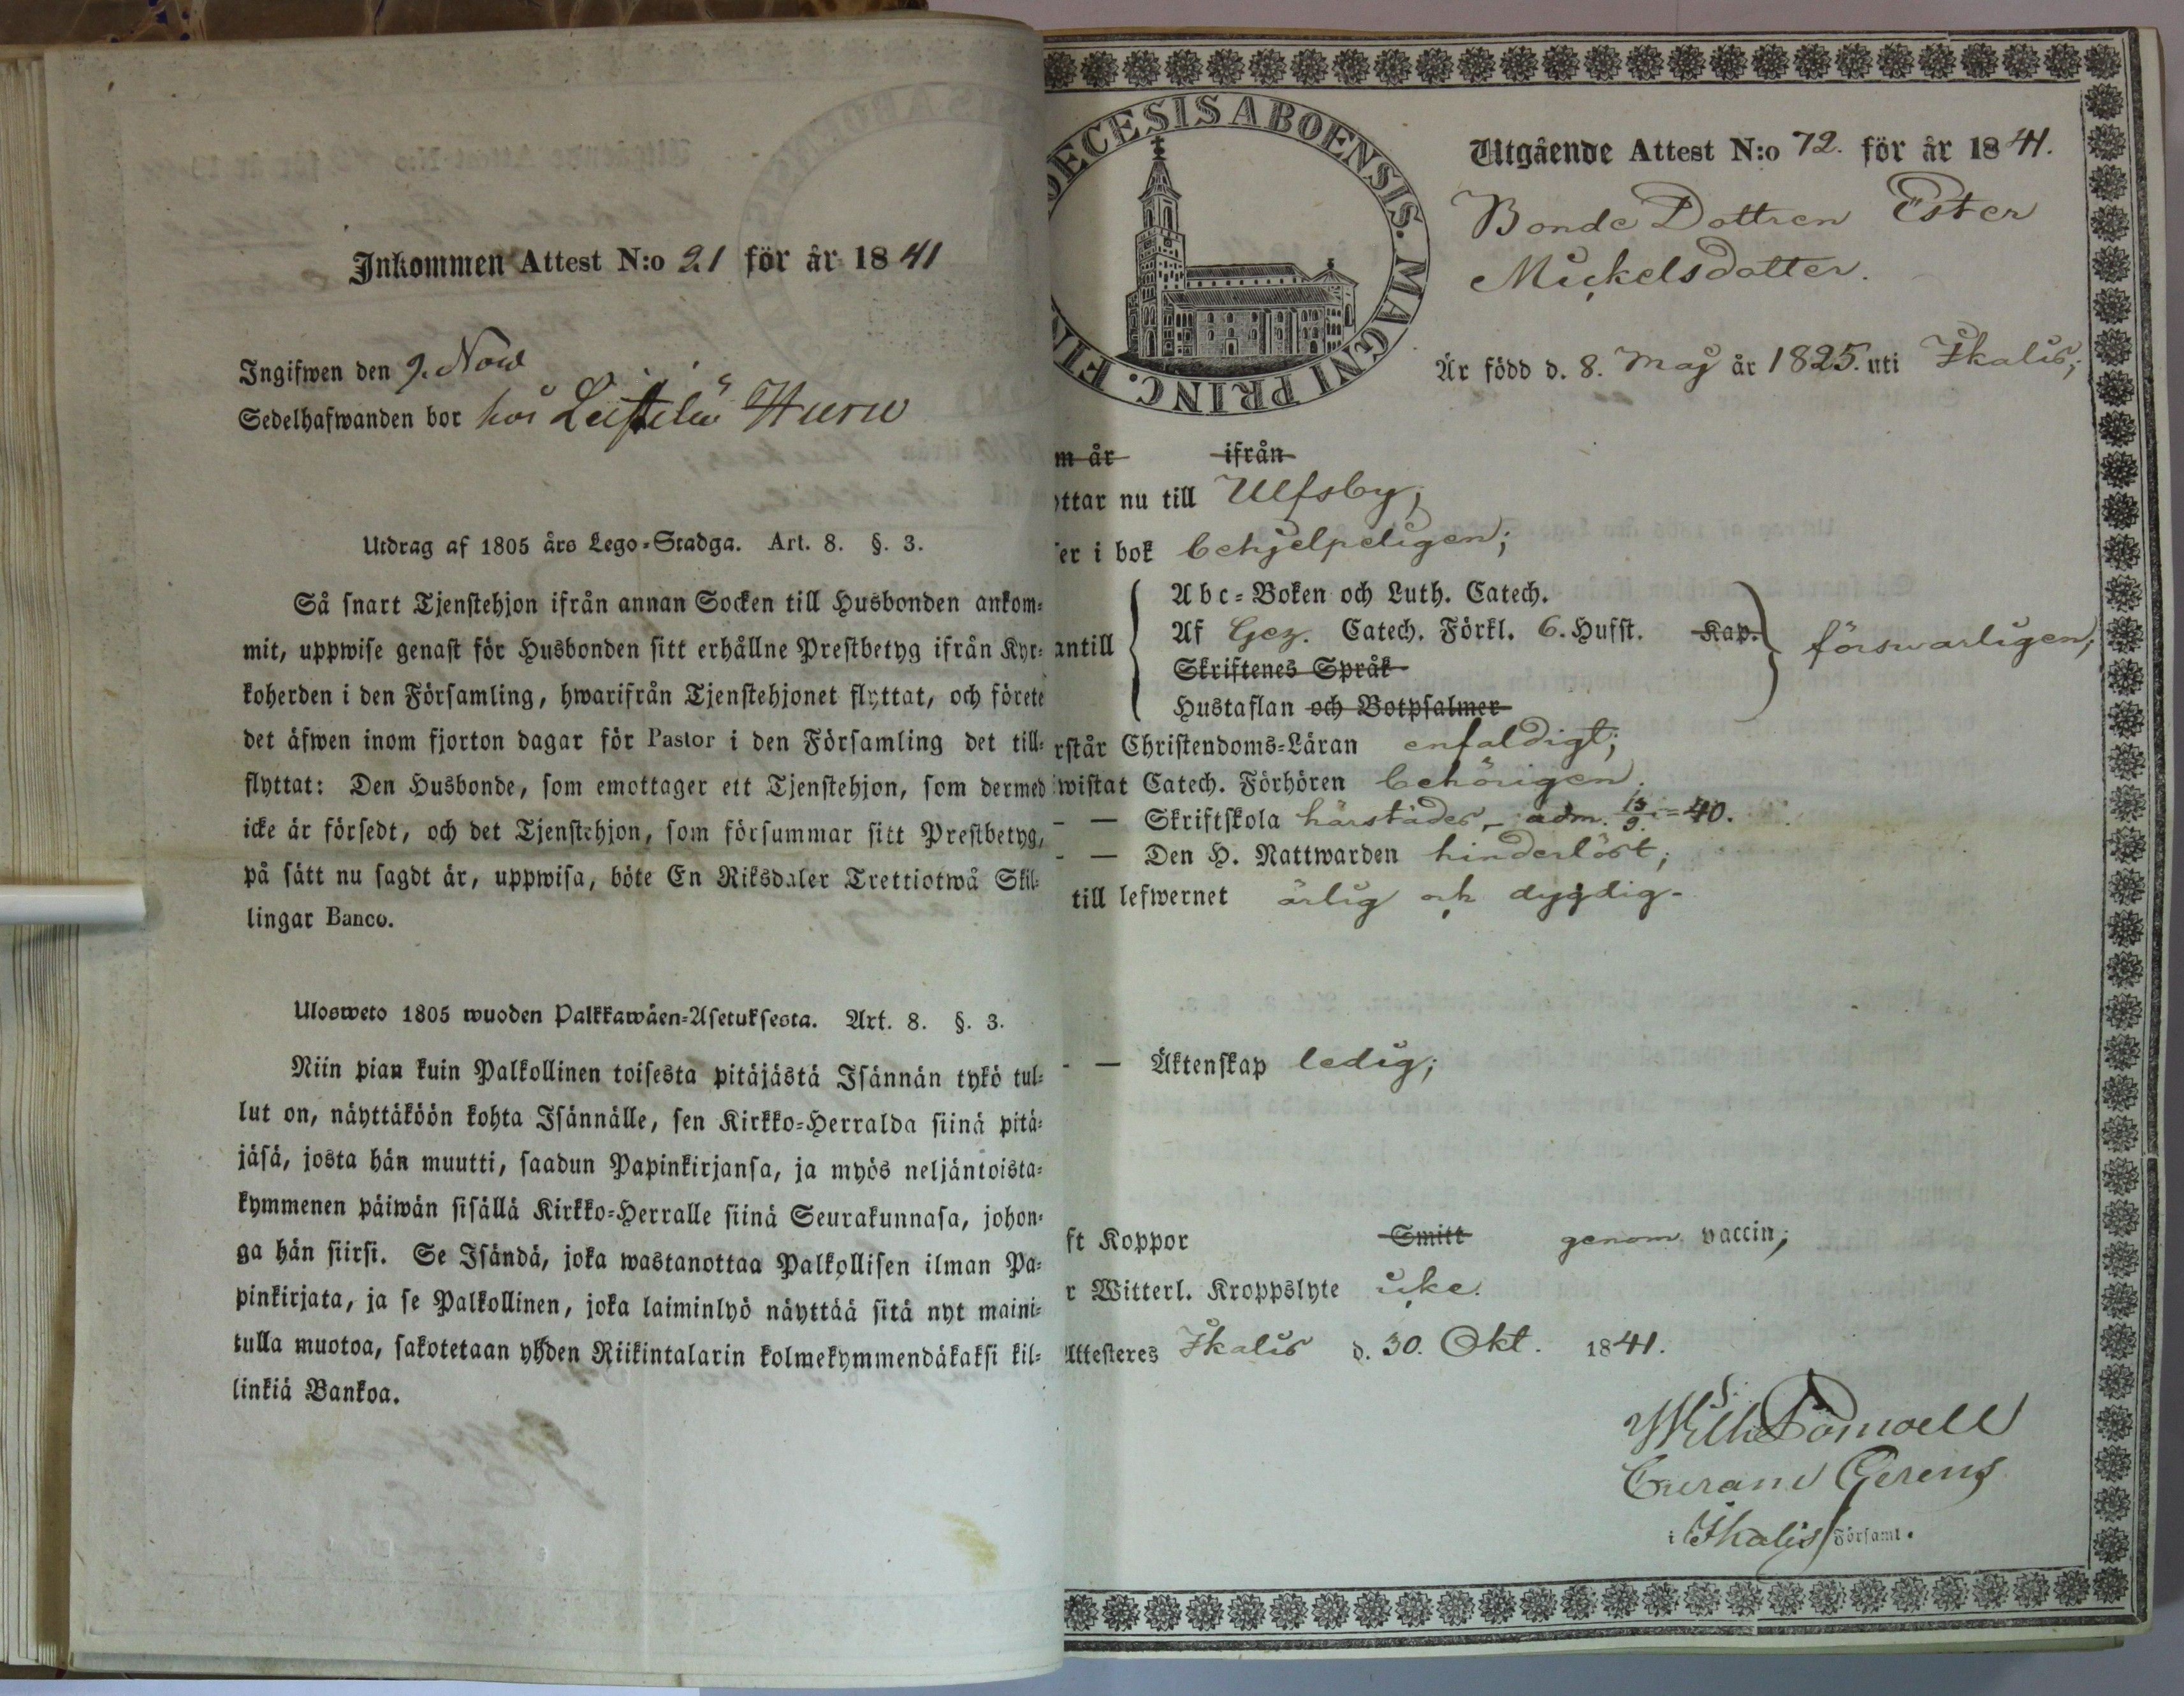 Inkommen Attest N:o 21 för år 1841
Ingifwen den 9. Nov
Sedelhafwanden bor hos Leistilä Huru
Utdrag af 1805 års Lego-Stadga. Art. 8. §. 3.
Så snart Tjenstehjon ifrån annan Socken till Husbonden ankom-
mit, uppwise genast för Husbonden sitt erhållne Prestbetyg ifrån Kyr-
koherden i den Församling, hwarifrån Tjenstehjonet flyttat, och förete
det äfwen inom fjorton dagar för Pastor i den Församling det till-
flyttat: Den Husbonde, som emottager ett Tjenstehjon, som dermed
icke är försedt, och det Tjenstehjon, som försummar sitt Prestbetyg,
på sätt nu sagdt är, uppwisa, böte En Riksdaler Trettiotwå Skil-
lingar Banco.
Ulosweto 1805 wuoden Palkkawäen-Asetuksesta. Art. 8. §. 3.
Niin pian kuin Palkollinen toisesta pitäjästä Isännän tykö tul-
lut on, näyttäköön kohta Isännälle, sen Kirkko-Herralda siinä pitä-
jäsä, josta hän muutti, saadun Papinkirjansa, ja myös neljäntoista-
kymmenen päiwän sisällä Kirkko-Herralle siinä Seurakunnasa, johon-
ga hän siirsi. Se Isändä, joka wastanottaa Palkollisen ilman Pa-
pinkirjata, ja se Palkollinen, joka laiminlyö näyttää sitä nyt maini-
tulla muotoa, sakotetaan yhden Riikintalarin kolmekymmendäkaksi kil-
linkiä Bankoa.
ŒCESIS ABOENSIS. MAGNI PRINC. FI
Utgående Attest N:o 72. för år 1841.
Bonde Dottren Ester
Mickelsdotter.
Är född d. 8. Maj år 1825. uti Ikalis;
m år ifrån
ttar nu till Ulfsby;
er i bok behjelpeligen;
antill
Abc-Boken och Luth. Catech.
Af Gez. Catech. Förkl. 6. Hufst. Kap. försvarligen;
Skriftenes Språk
Hustaflan och Botpsalmer
rstår Christendoms-Läran enfaldigt;
wistat Catech. Förhören behörigen.
- — Skriftskola härstädes, - adm. 13/9 = 40.
- — Den H. Nattwarden hinderlöst;
till lefwernet ärlig och dygdig -
- — Äktenskap ledig;
ft Koppor Smitt genom vaccin;
r Witterl. Kroppslyte icke.
Attesteres Ikalis d. 30. Okt. 1841.
Wilh
Curam Gerens
i Ikalis Församl.